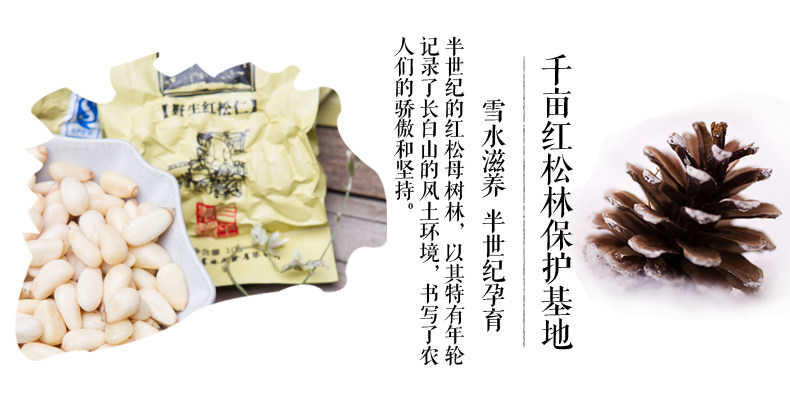 千亩红松林保护基地
雪水滋养 半世纪孕育
半世纪的红松母树林，以其特有年轮
记录了长白山的风土环境，书写了农
人们的骄傲和坚持。
【野生红松仁】